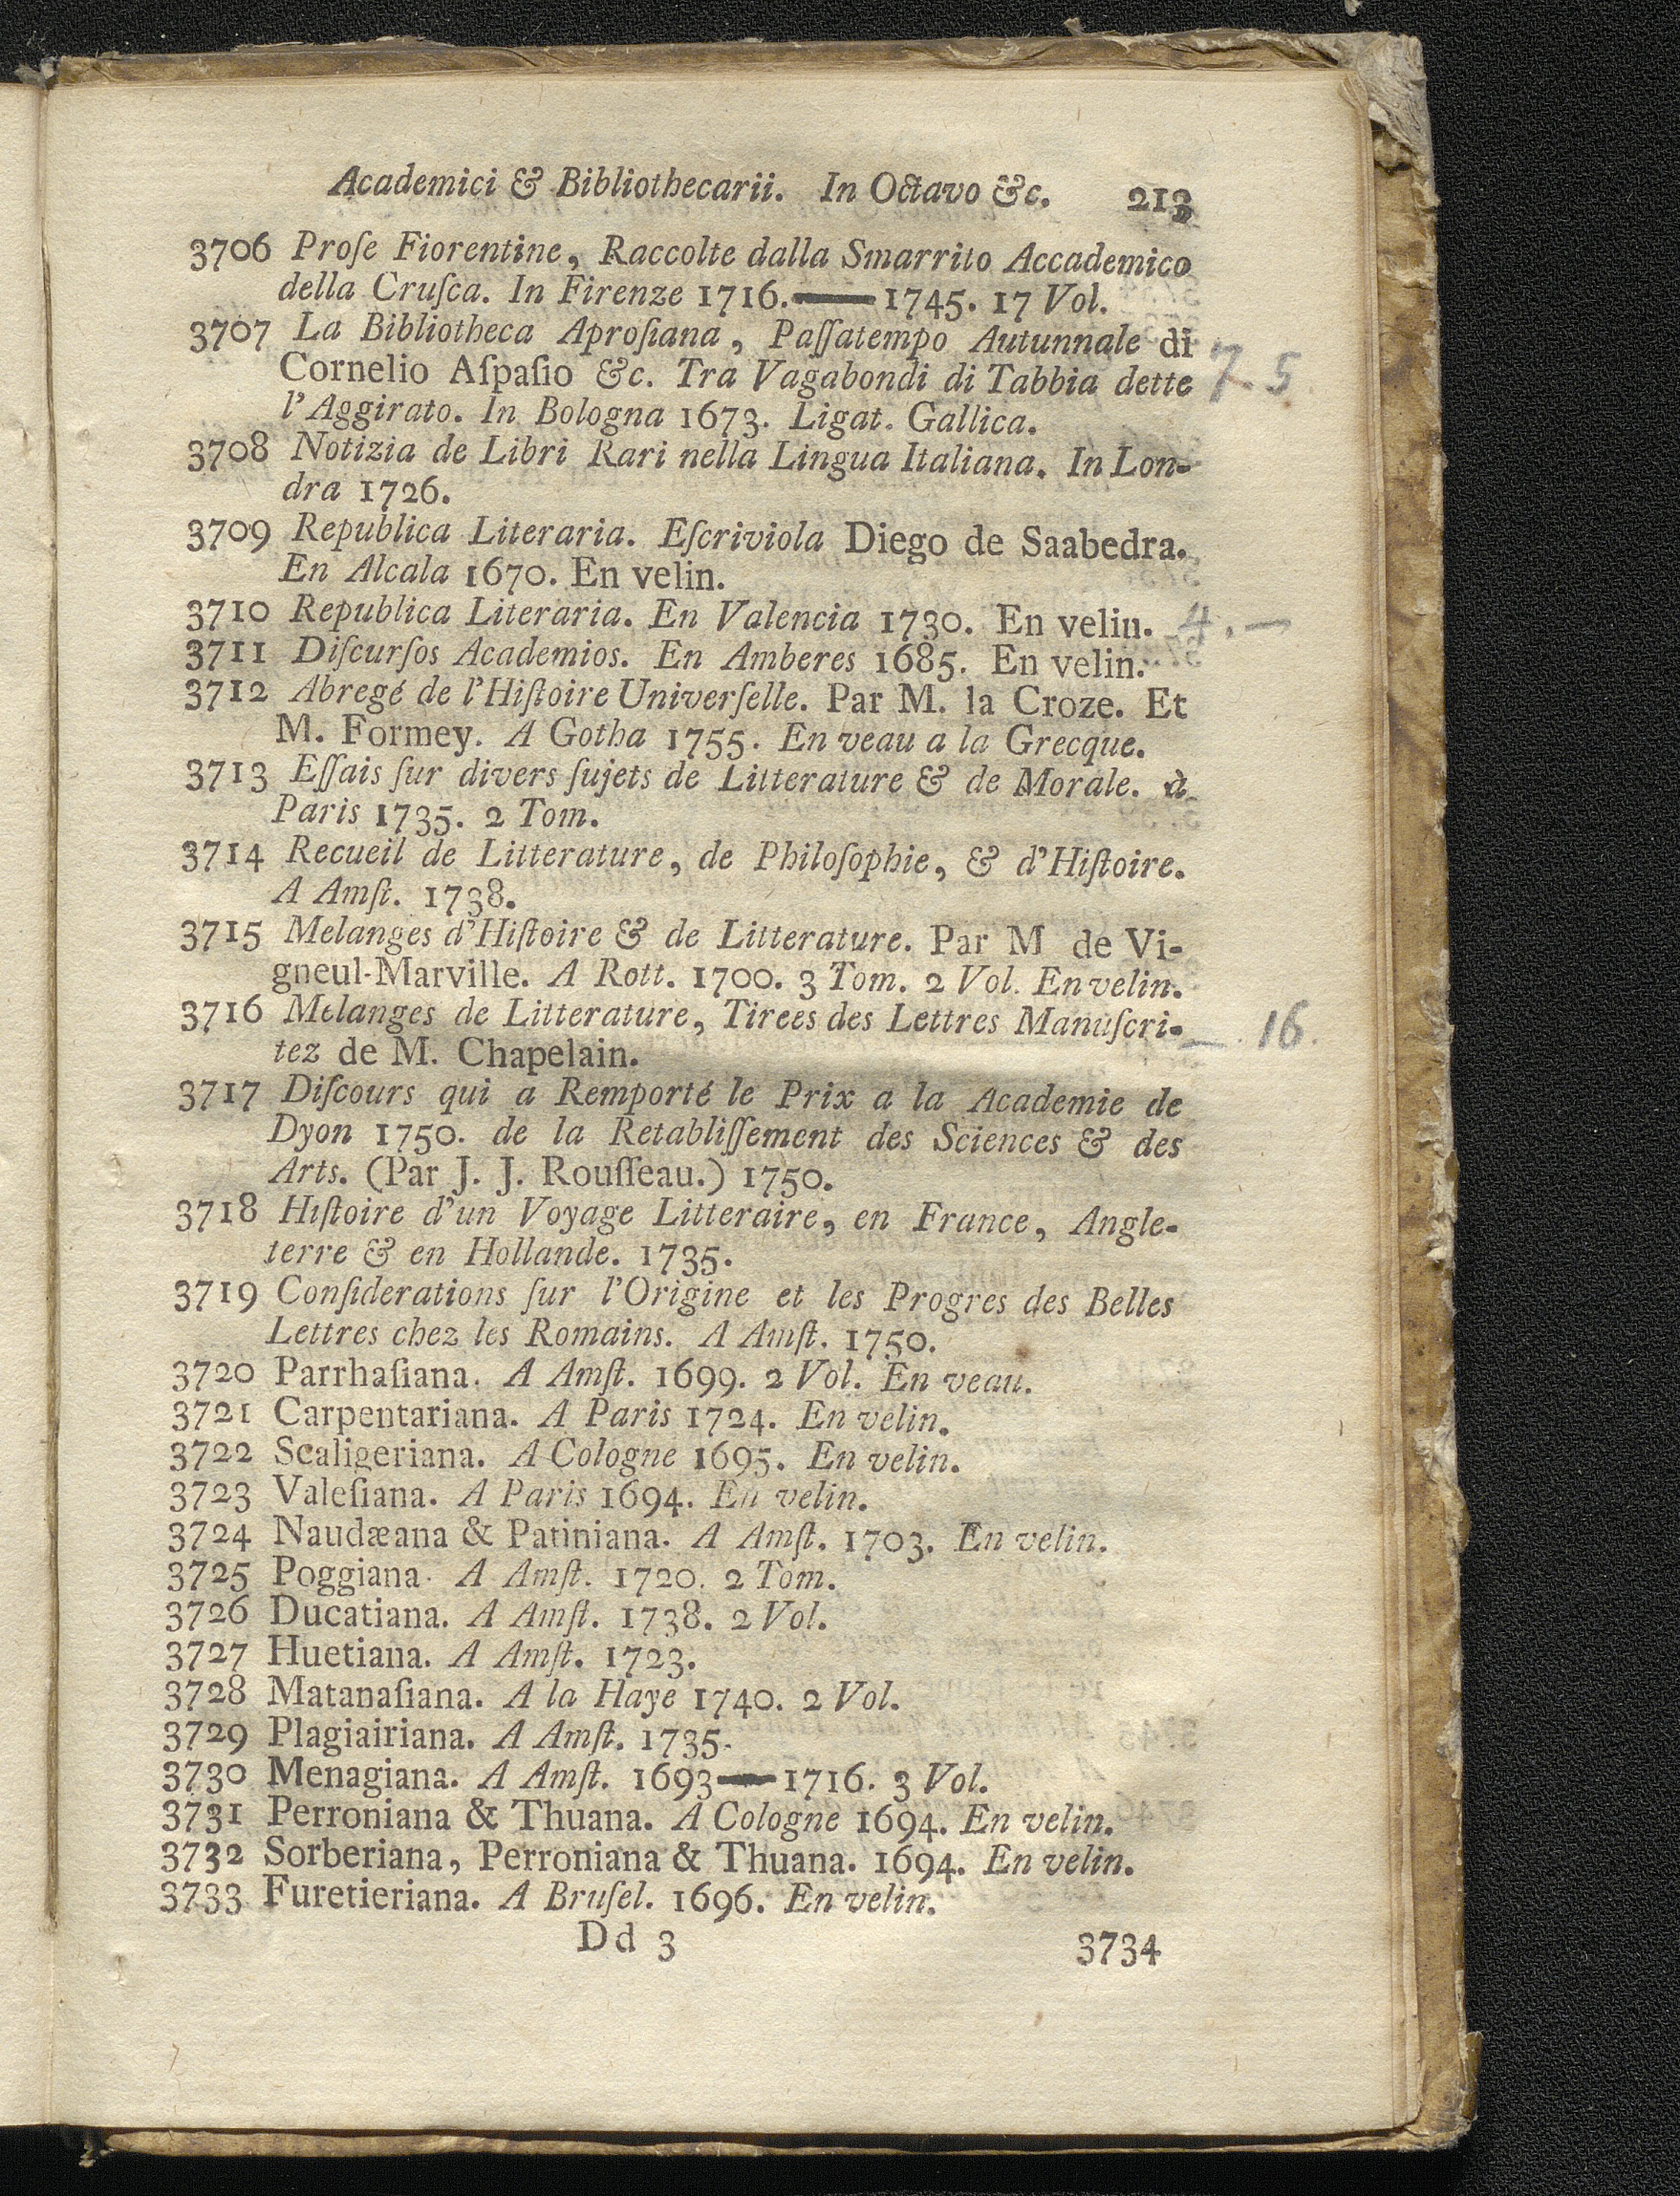 Academici & Bibliothecarii. In Octavo &c. 213
3706 Proſe Fiorentine, Raccolte dalla Smarrito Accademico
della Cruſca. In Firenze 1716.——1745. 17 Vol.
3707 La Bibliotheca Aproſiana, Paſſatempo Autunnale di
Cornelio Aſpaſio &c. Tra Vagabondi di Tabbia dette 7.5
l'Aggirato. In Bologna 1673. Ligat. Gallica.
3708 Notizia de Libri Rari nella Lingua Italiana. In Lon-
dra 1726.
3709 Republica Literaria. Eſcriviola Diego de Saabedra.
En Alcala 1670. En velin.
3710 Republica Literaria. En Valencia 1730. En velin. 4.—
3711 Diſcurſos Academios. En Amberes 1685. En velin.
3712 Abregé de l'Hiſtoire Univerſelle. Par M. la Croze. Et
M. Formey. A Gotha 1755. En veau a la Grecque.
3713 Eſſais ſur divers ſujets de Litterature & de Morale. à
Paris 1735. 2 Tom.
3714 Recueil de Litterature, de Philoſophie, & d'Hiſtoire.
A Amſt. 1738.
3715 Melanges d'Hiſtoire & de Litterature. Par M de Vi-
gneul-Marville. A Rott. 1700. 3 Tom. 2 Vol. En velin.
3716 Melanges de Litterature, Tirees des Lettres Manuſcri- —.16.
tez de M. Chapelain.
3717 Diſcours qui a Remporté le Prix a la Academie de
Dyon 1750. de la Retabliſſement des Sciences & des
Arts. (Par J. J. Rouſſeau.) 1750.
3718 Hiſtoire d'un Voyage Litteraire, en France, Angle-
terre & en Hollande. 1735.
3719 Conſiderations ſur l'Origine et les Progres des Belles
Lettres chez les Romains. A Amſt. 1750.
3720 Parrhaſiana. A Amſt. 1699. 2 Vol. En veau.
3721 Carpentariana. A Paris 1724. En velin.
3722 Scaligeriana. A Cologne 1695. En velin.
3723 Valeſiana. A Paris 1694. En velin.
3724 Naudæana & Patiniana. A Amſt. 1703. En velin.
3725 Poggiana. A Amſt. 1720. 2 Tom.
3726 Ducatiana. A Amſt. 1738. 2 Vol.
3727 Huetiana. A Amſt. 1723.
3728 Matanaſiana. A la Haye 1740. 2 Vol.
3729 Plagiairiana. A Amſt. 1735.
3730 Menagiana. A Amſt. 1693——1716. 3 Vol.
3731 Perroniana & Thuana. A Cologne 1694. En velin.
3732 Sorberiana, Perroniana & Thuana. 1694. En velin.
3733 Furetieriana. A Bruſel. 1696. En velin.
Dd 3 3734